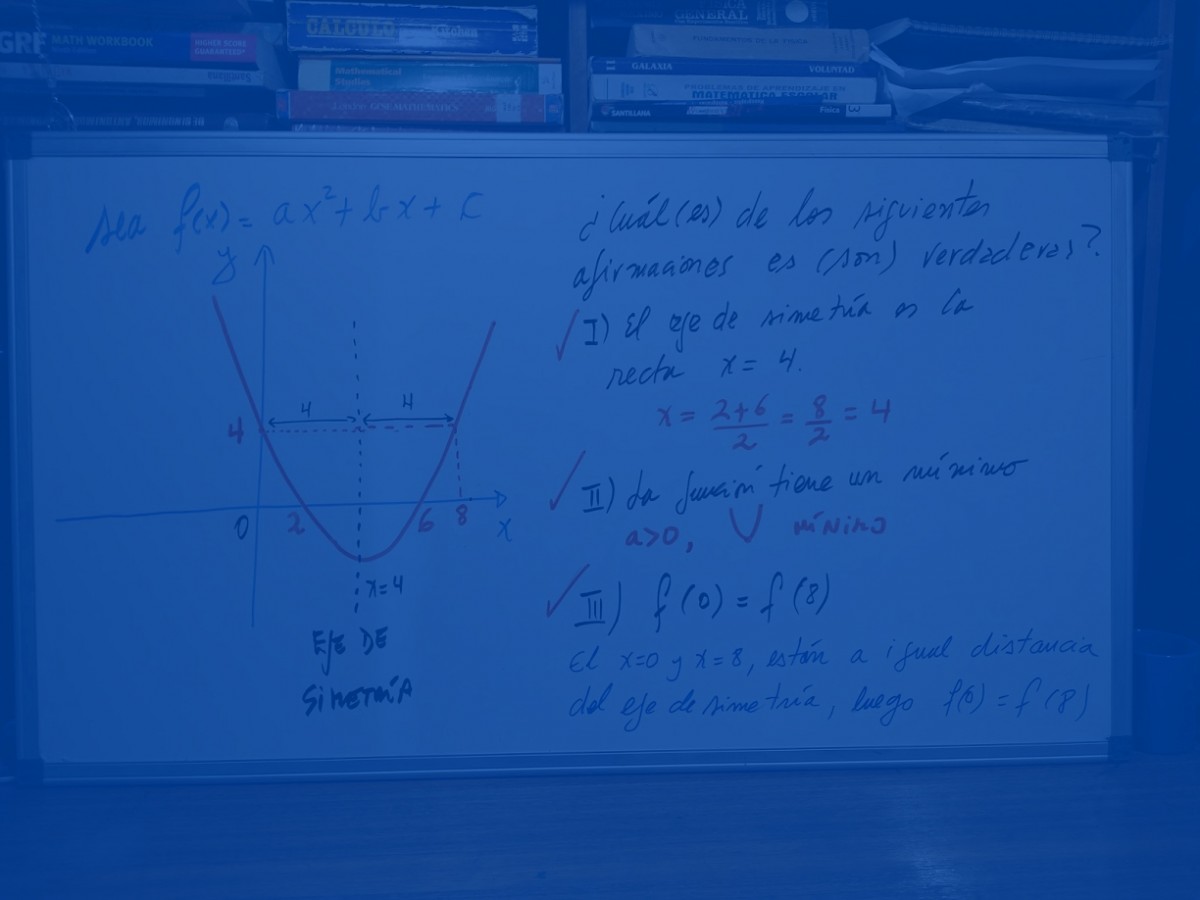 GRE MATH WORKBOOK HIGHER SCORE GUARANTEED*
CALCULO
Mathematical Studies
GCSE MATHEMATICS
GENERAL
GALAXIA VOLUNTAD
PROBLEMAS DE APRENDIZAJE EN
MATEMATICA ESCOLAR
SANTILLANA Física 3
sea f(x) = ax² + bx + c
y
4
4
4
0
2
6
8
x
x=4
EJE DE
SIMETRÍA
¿Cuál(es) de las siguientes
afirmaciones es (son) verdaderas?
✓ I) El eje de simetría es la
recta x = 4.
x = 2+6/2 = 8/2 = 4
✓ II) La función tiene un mínimo
a>0, ∪ MÍNIMO
✓ III) f(0) = f(8)
El x=0 y x=8, están a igual distancia
del eje de simetría, luego f(0) = f(8)